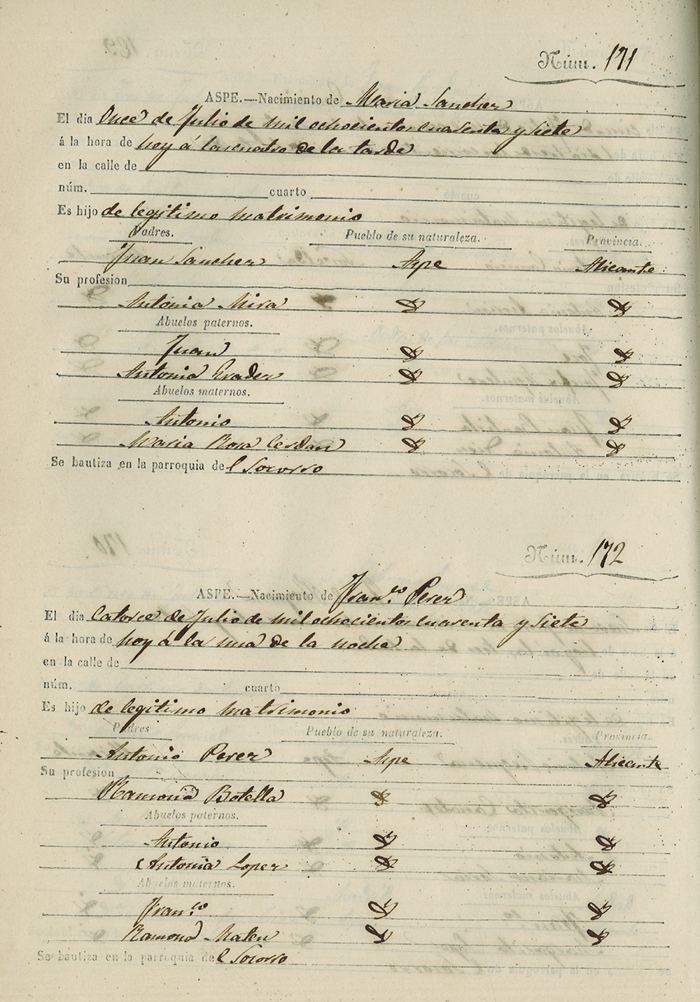 Núm. 171
ASPE.—Nacimiento de Maria Sanchez
El dia Once de Julio de mil ochocientos cuarenta y siete
á la hora de hoy á las cuatro de la tarde
en la calle de
núm. cuarto
Es hijo de legitimo matrimonio
Padres. Pueblo de su naturaleza. Provincia.
Juan Sanchez Aspe Alicante
Su profesion
Antonia Mira
Abuelos paternos.
Juan
Antonia
Abuelos maternos.
Antonio
Maria Rosa Cerdan
Se bautiza en la parroquia del Socorro
Núm. 172
ASPE.—Nacimiento de Fran.co Perez
El dia Catorce de Julio de mil ochocientos cuarenta y siete
á la hora de hoy á la una de la noche
en la calle de
núm. cuarto
Es hijo de legitimo matrimonio
Padres Pueblo de su naturaleza. Provincia.
Antonio Perez Aspe Alicante
Su profesion
Ramona Botella
Abuelos paternos.
Antonio
Antonia Lopez
Abuelos maternos.
Fran.co
Ramona Mateu
Se bautiza en la parroquia del Socorro